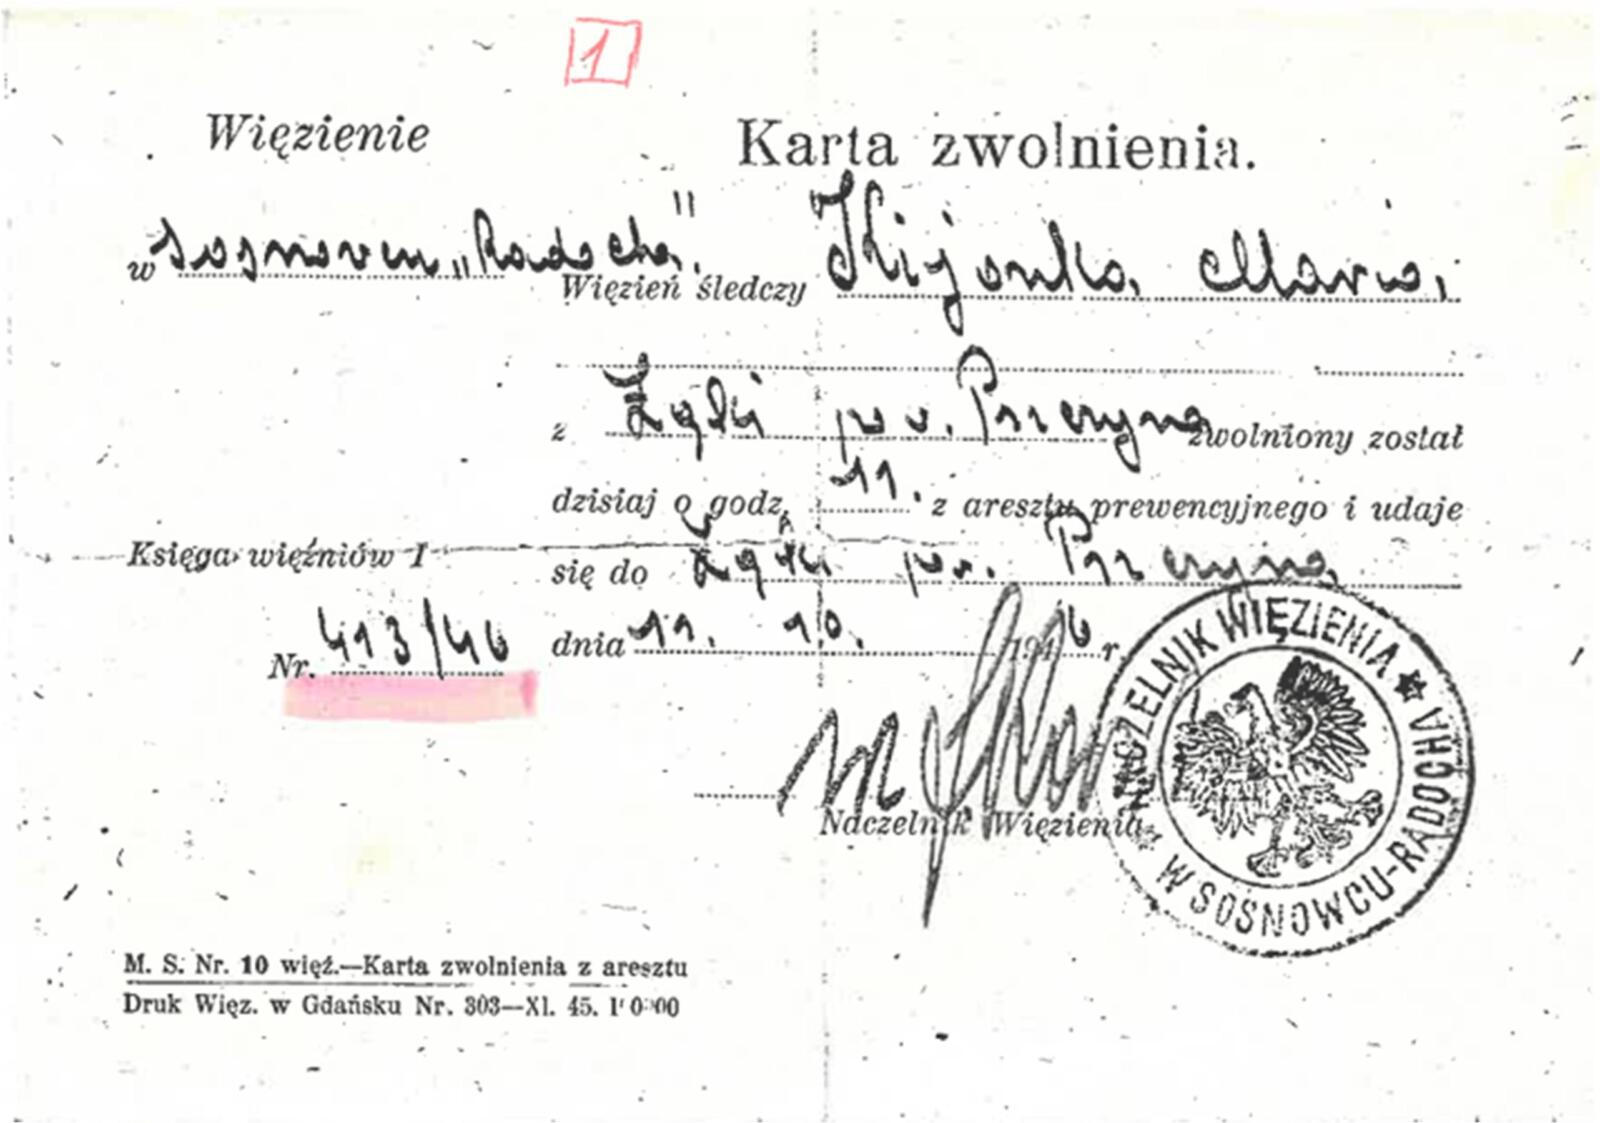 1
Więzienie
Karta zwolnienia.
w Sosnowcu „Radocha"
Więzień śledczy Kijonka Maria,
z Żądki pow. zwolniony został
dzisiaj o godz. 11. z aresztu prewencyjnego i udaje
Księga więźniów I
się do Żądki
Nr. 413/46
dnia 11. 10. 1946 r.
Naczelnik Więzienia
NACZELNIK WIĘZIENIA ★ W SOSNOWCU-RADOCHA
M. S. Nr. 10 więź.—Karta zwolnienia z aresztu
Druk Więz. w Gdańsku Nr. 303—XI. 45.